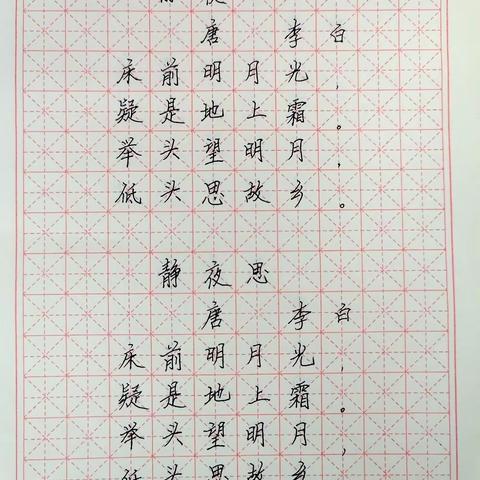 唐 李白
床前明月光，
疑是地上霜。
举头望明月，
低头思故乡。
静夜思
唐 李白
床前明月光，
疑是地上霜。
举头望明月，
低头思故乡